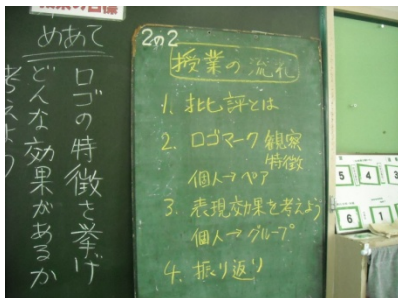 の目標
めあて
ロゴの特徴を挙げ
どんな効果があるか
考えよう
2の2
授業の流れ
1. 批評とは
2. ロゴマーク 観察
特徴
個人→ペア
3. 表現効果を考えよう
個人→グループ
4. 振り返り
5
4
3
6
1